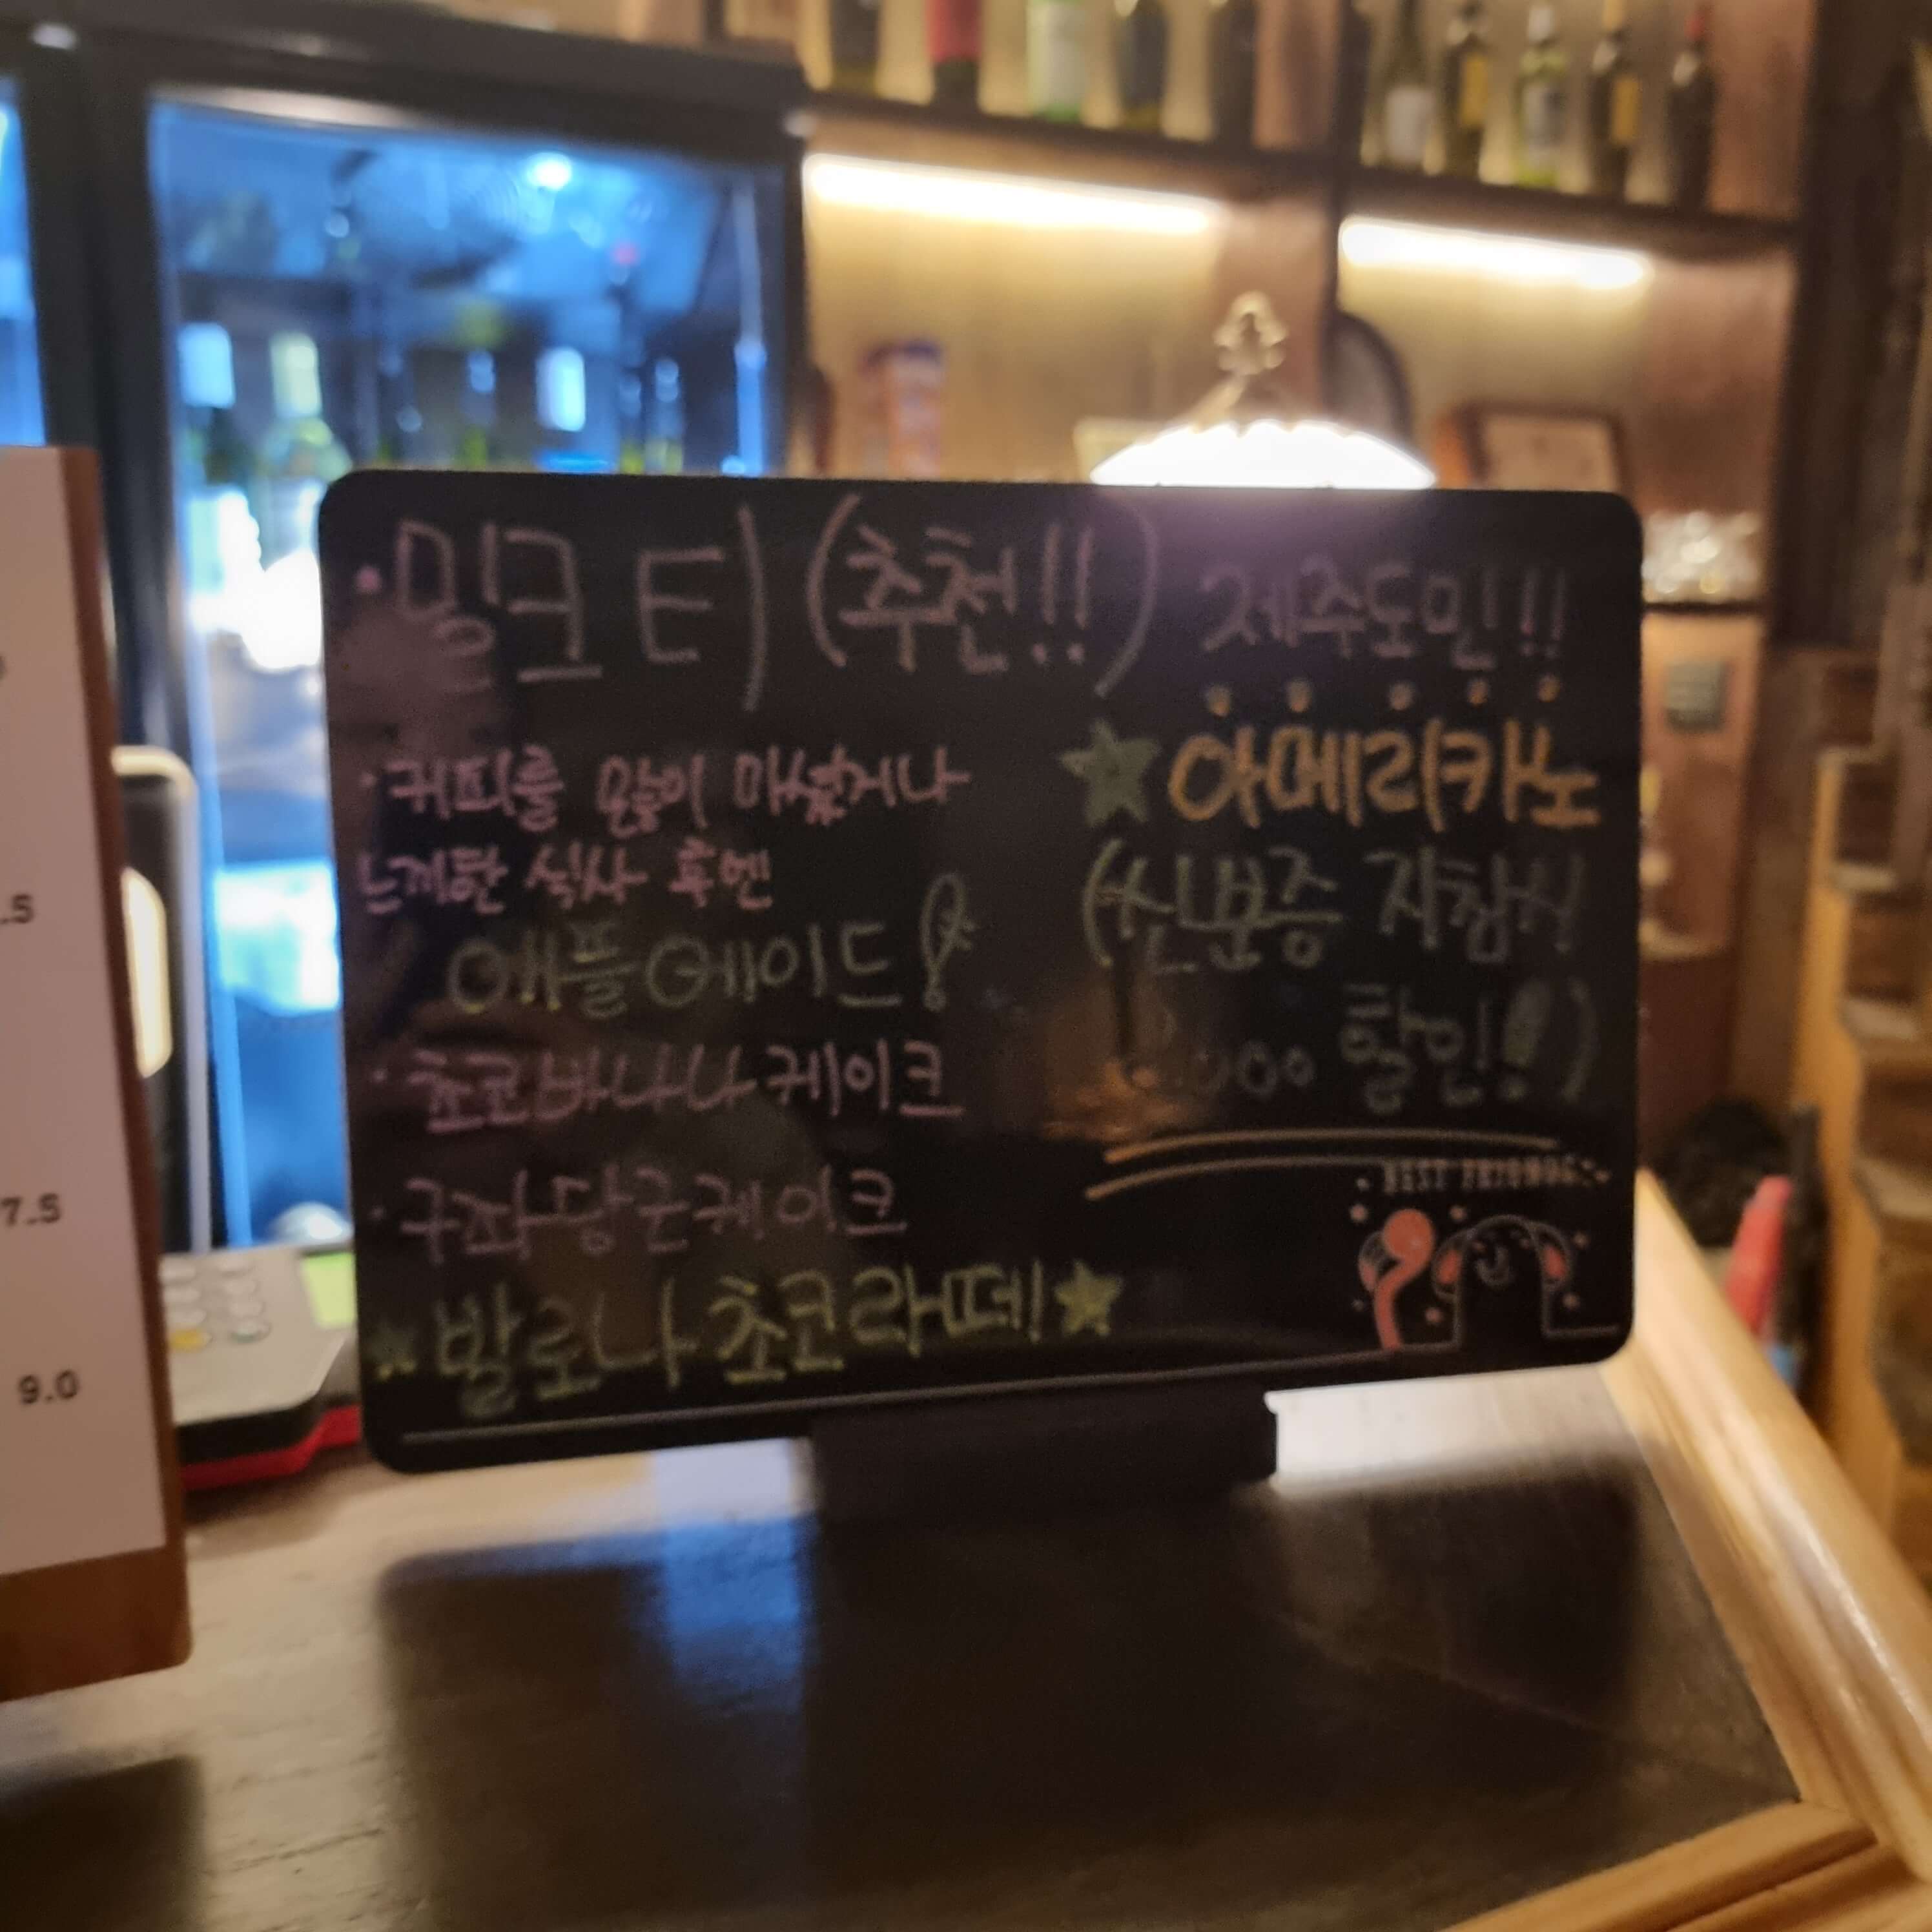 · 밍크티 (추천!!)
· 커피를 많이 마셨거나
느끼한 식사 후엔
애플에이드!
· 초코바나나케이크
· 구좌당근케이크
★ 발로나 초코라떼! ★
제주도민!!
★ 아메리카노
(신분증 지참시
할인!)
BEST FRIENDS
.5
7.5
9.0